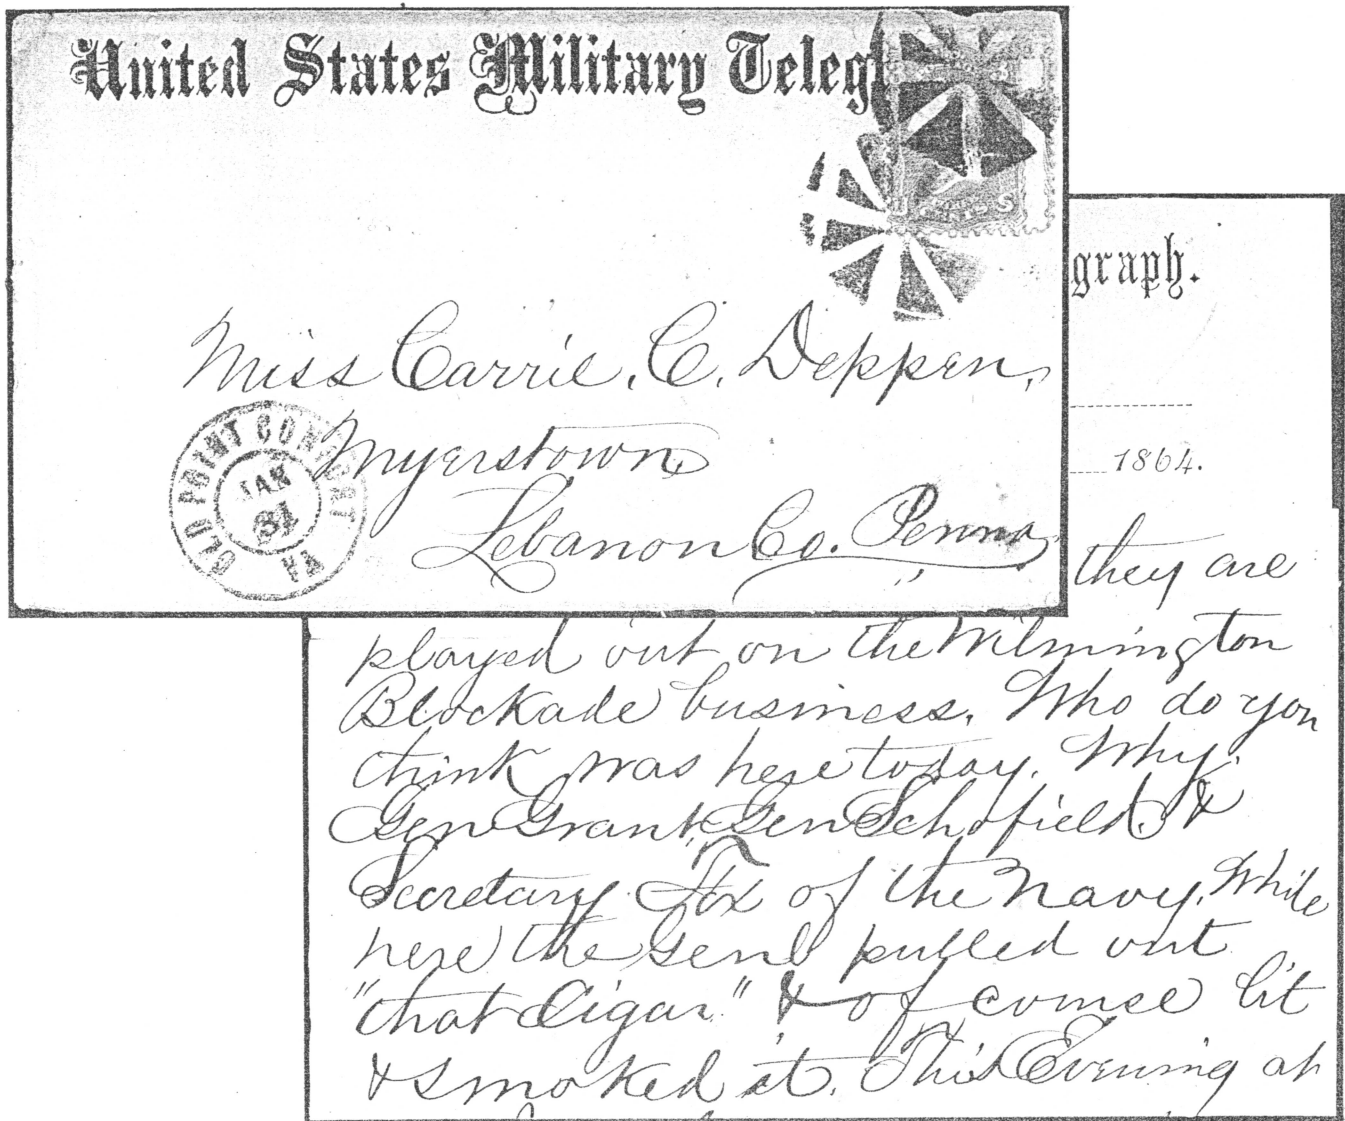 United States Military Telegr
CENTS
Miss Carrie. C. Deppen,
Myerstown
Lebanon Co. Penna,
OLD POINT COMFORT
JAN
31
VA
graph.
1864.
they are
played out on the Wilmington
Blockade business. Who do you
think was here today. Why.
Gen Grant, Gen Schofield. &
Secretary Fox of the Navy. While
here the Genl pulled out
"that Cigar" & of course lit
& smoked it. This Evening at